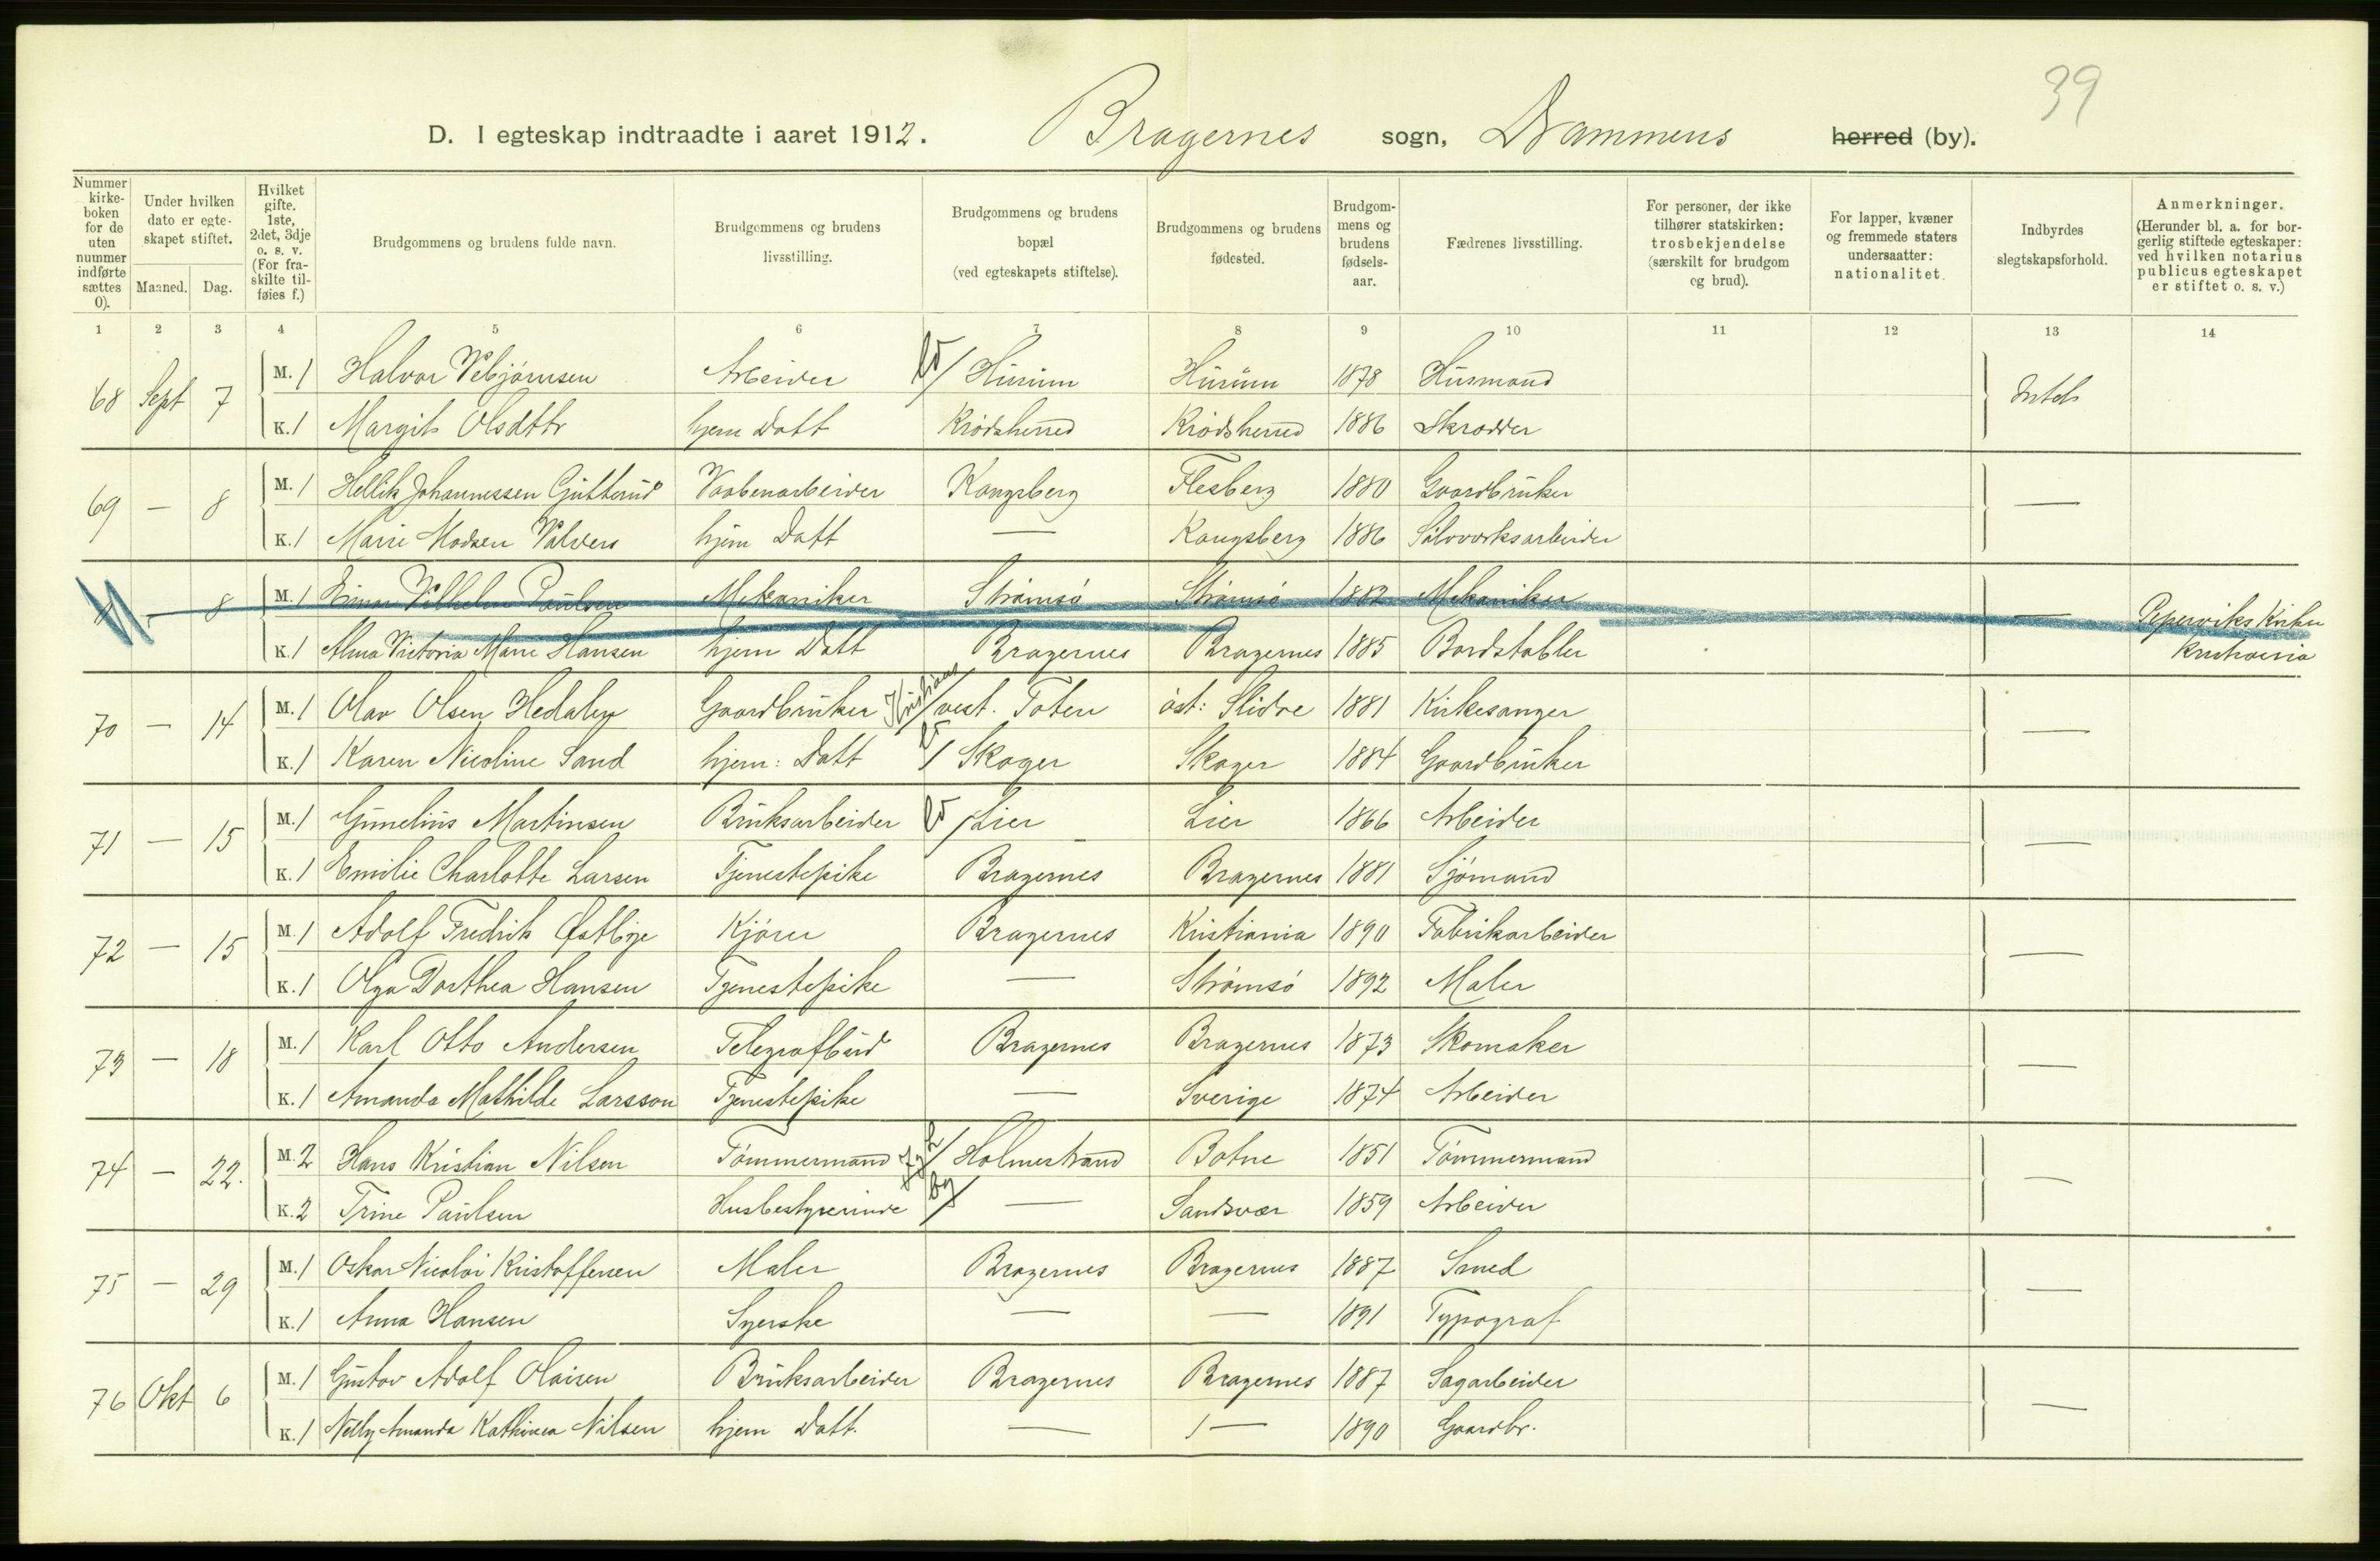 39
D. I egteskap indtraadte i aaret 1912. Bragernes sogn, Drammens herred (by).
Nummer kirkeboken for de uten nummer indførte sættes 0).
Under hvilken dato er egteskapet stiftet.
Maaned. Dag.
Hvilket gifte. 1ste, 2det, 3dje o. s. v. (For fraskilte tilføies f.)
Brudgommens og brudens fulde navn.
Brudgommens og brudens livsstilling.
Brudgommens og brudens bopæl (ved egteskapets stiftelse).
Brudgommens og brudens fødested.
Brudgommens og brudens fødselsaar.
Fædrenes livsstilling.
For personer, der ikke tilhører statskirken: trosbekjendelse (særskilt for brudgom og brud).
For lapper, kvæner og fremmede staters undersaatter: nationalitet.
Indbyrdes slegtskapsforhold.
Anmerkninger. (Herunder bl. a. for borgerlig stiftede egteskaper: ved hvilken notarius publicus egteskapet er stiftet o. s. v.)
1 2 3 4 5 6 7 8 9 10 11 12 13 14
68 Sept 7 M. 1 Halvor Vebjørnsen Arbeider ld / Hurum Hurum 1878 Husmand Intet
K. 1 Margit Olsdttr hjem Datt Krødsherred Krødsherred 1886 Skrædder
69 — 8 M. 1 Hellik Johannessen Gutterud Vaabenarbeider Kongsberg Flesberg 1880 Gaardbruker —
K. 1 Marie Madsen Valders hjem Datt — Kongsberg 1886 Sølvverksarbeider
— 8 M. 1 Einar Vilhelm Paulsen Mekaniker Strømsø Strømsø 1882 Mekaniker — Pipervikskirken
K. 1 Alma Victoria Marie Hansen hjem Datt Bragernes Bragernes 1885 Bordstabler Kristiania
70 — 14 M. 1 Olav Olsen Hedalen Gaardbruker Kristians / vest. Toten øst: Slidre 1881 Kirkesanger —
K. 1 Karen Nicoline Sand hjem: Datt ld / Skoger Skoger 1884 Gaardbruker
71 — 15 M. 1 Gunelius Martinsen Bruksarbeider ld / Lier Lier 1866 Arbeider —
K. 1 Emilie Charlotte Larsen Tjenestepike Bragernes Bragernes 1881 Sjømand
72 — 15 M. 1 Adolf Fredrik Østbye Kjører Bragernes Kristiania 1890 Fabrikarbeider —
K. 1 Olga Dorthea Hansen Tjenestepike — Strømsø 1892 Maler
73 — 18 M. 1 Karl Otto Andersen Telegrafbud Bragernes Bragernes 1873 Skomaker —
K. 1 Amanda Mathilde Larsson Tjenestepike — Sverige 1874 Arbeider
74 — 22. M. 2 Hans Kristian Nilsen Tømmermand / Holmestrand Botne 1851 Tømmermand —
K. 2 Trine Paulsen Husbestyrerinde by / — Sandsvær 1859 Arbeider
75 — 29 M. 1 Oskar Nicolai Kristoffersen Maler Bragernes Bragernes 1887 Smed —
K. 1 Anna Hansen Syerske — — 1891 Typograf
76 Okt 6 M. 1 Gustav Adolf Olaisen Bruksarbeider Bragernes Bragernes 1887 Sagarbeider —
K. 1 Nelly Amanda Kathinca Nilsen hjem Datt. — — 1890 Gaardbr.